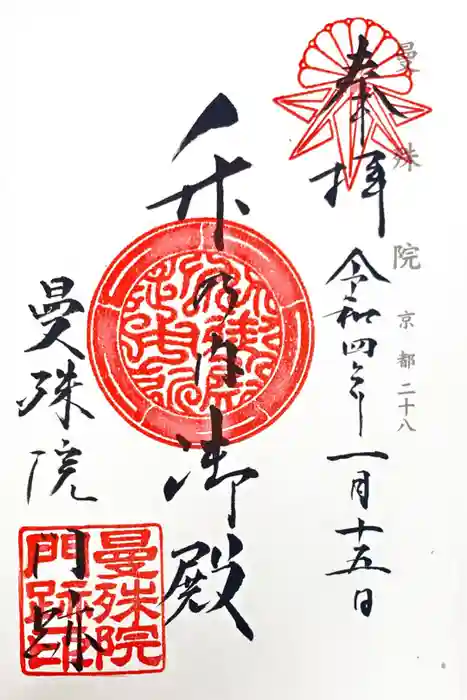 曼殊院 京都二十八
奉拝
令和四年一月十五日
竹乃内御殿
曼殊院
門跡
曼殊院